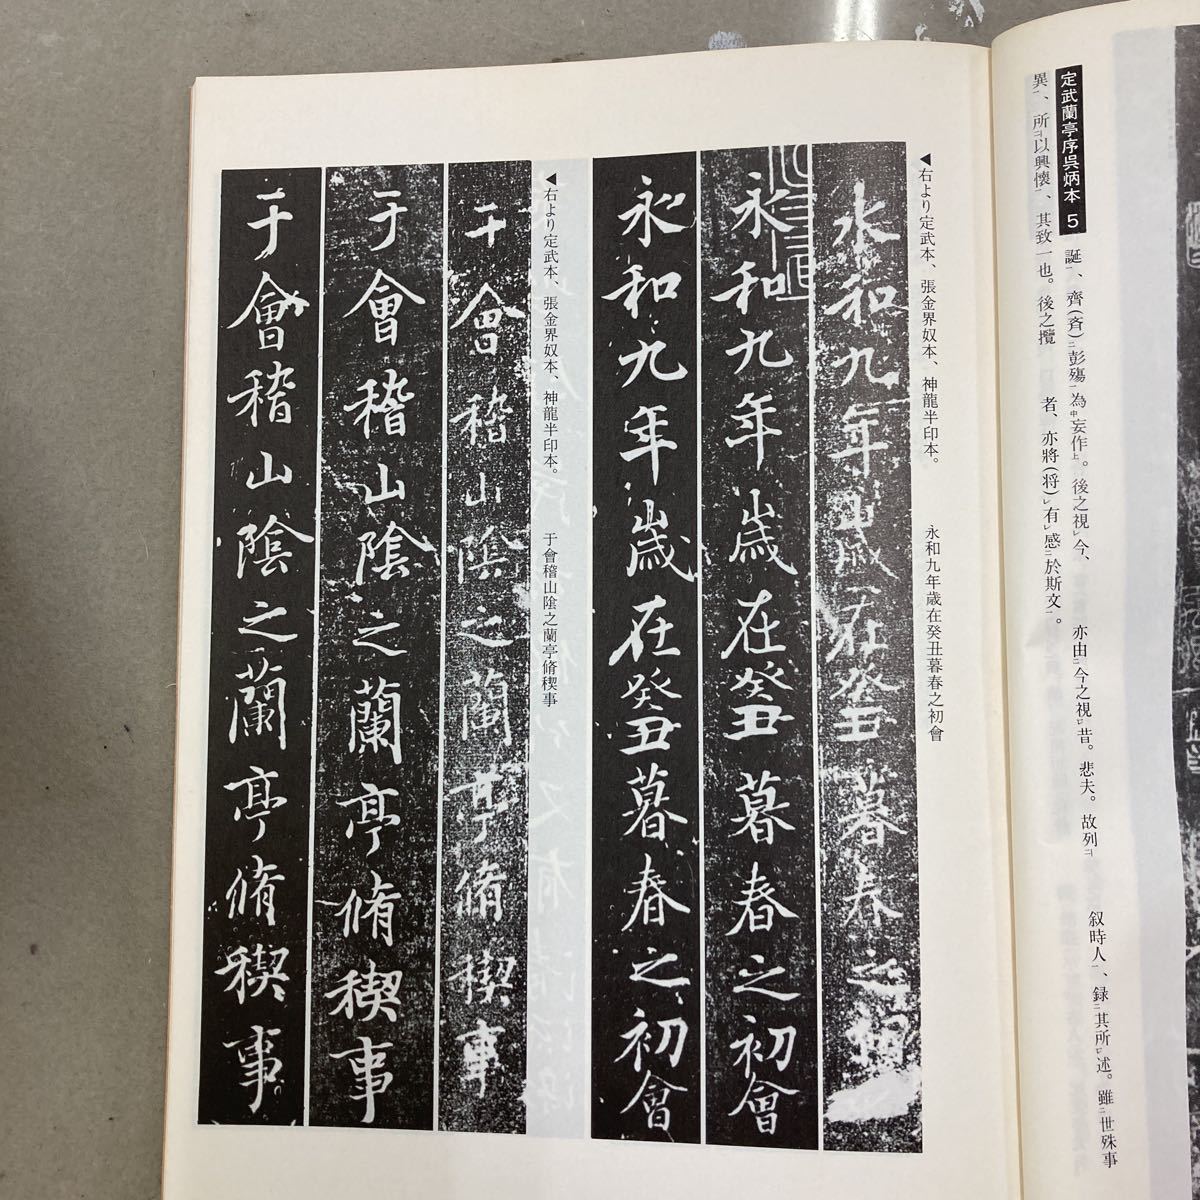 定武蘭亭序呉炳本 5
誕、齊(斉)彭殤為妄作。後之視今、 亦由今之視昔。悲夫。故列 叙時人、録其所述。雖世殊事
異、所以興懷、其致一也。後之攬 者、亦將(将)有感於斯文。
◀右より定武本、張金界奴本、神龍半印本。 永和九年歳在癸丑暮春之初會
永和九年歲在癸丑暮春之初
永和九年歲在癸丑暮春之初會
永和九年歲在癸丑暮春之初會
◀右より定武本、張金界奴本、神龍半印本。 于會稽山陰之蘭亭脩稧事
于會稽山陰之蘭亭脩稧事
于會稽山陰之蘭亭脩稧事
于會稽山陰之蘭亭脩稧事